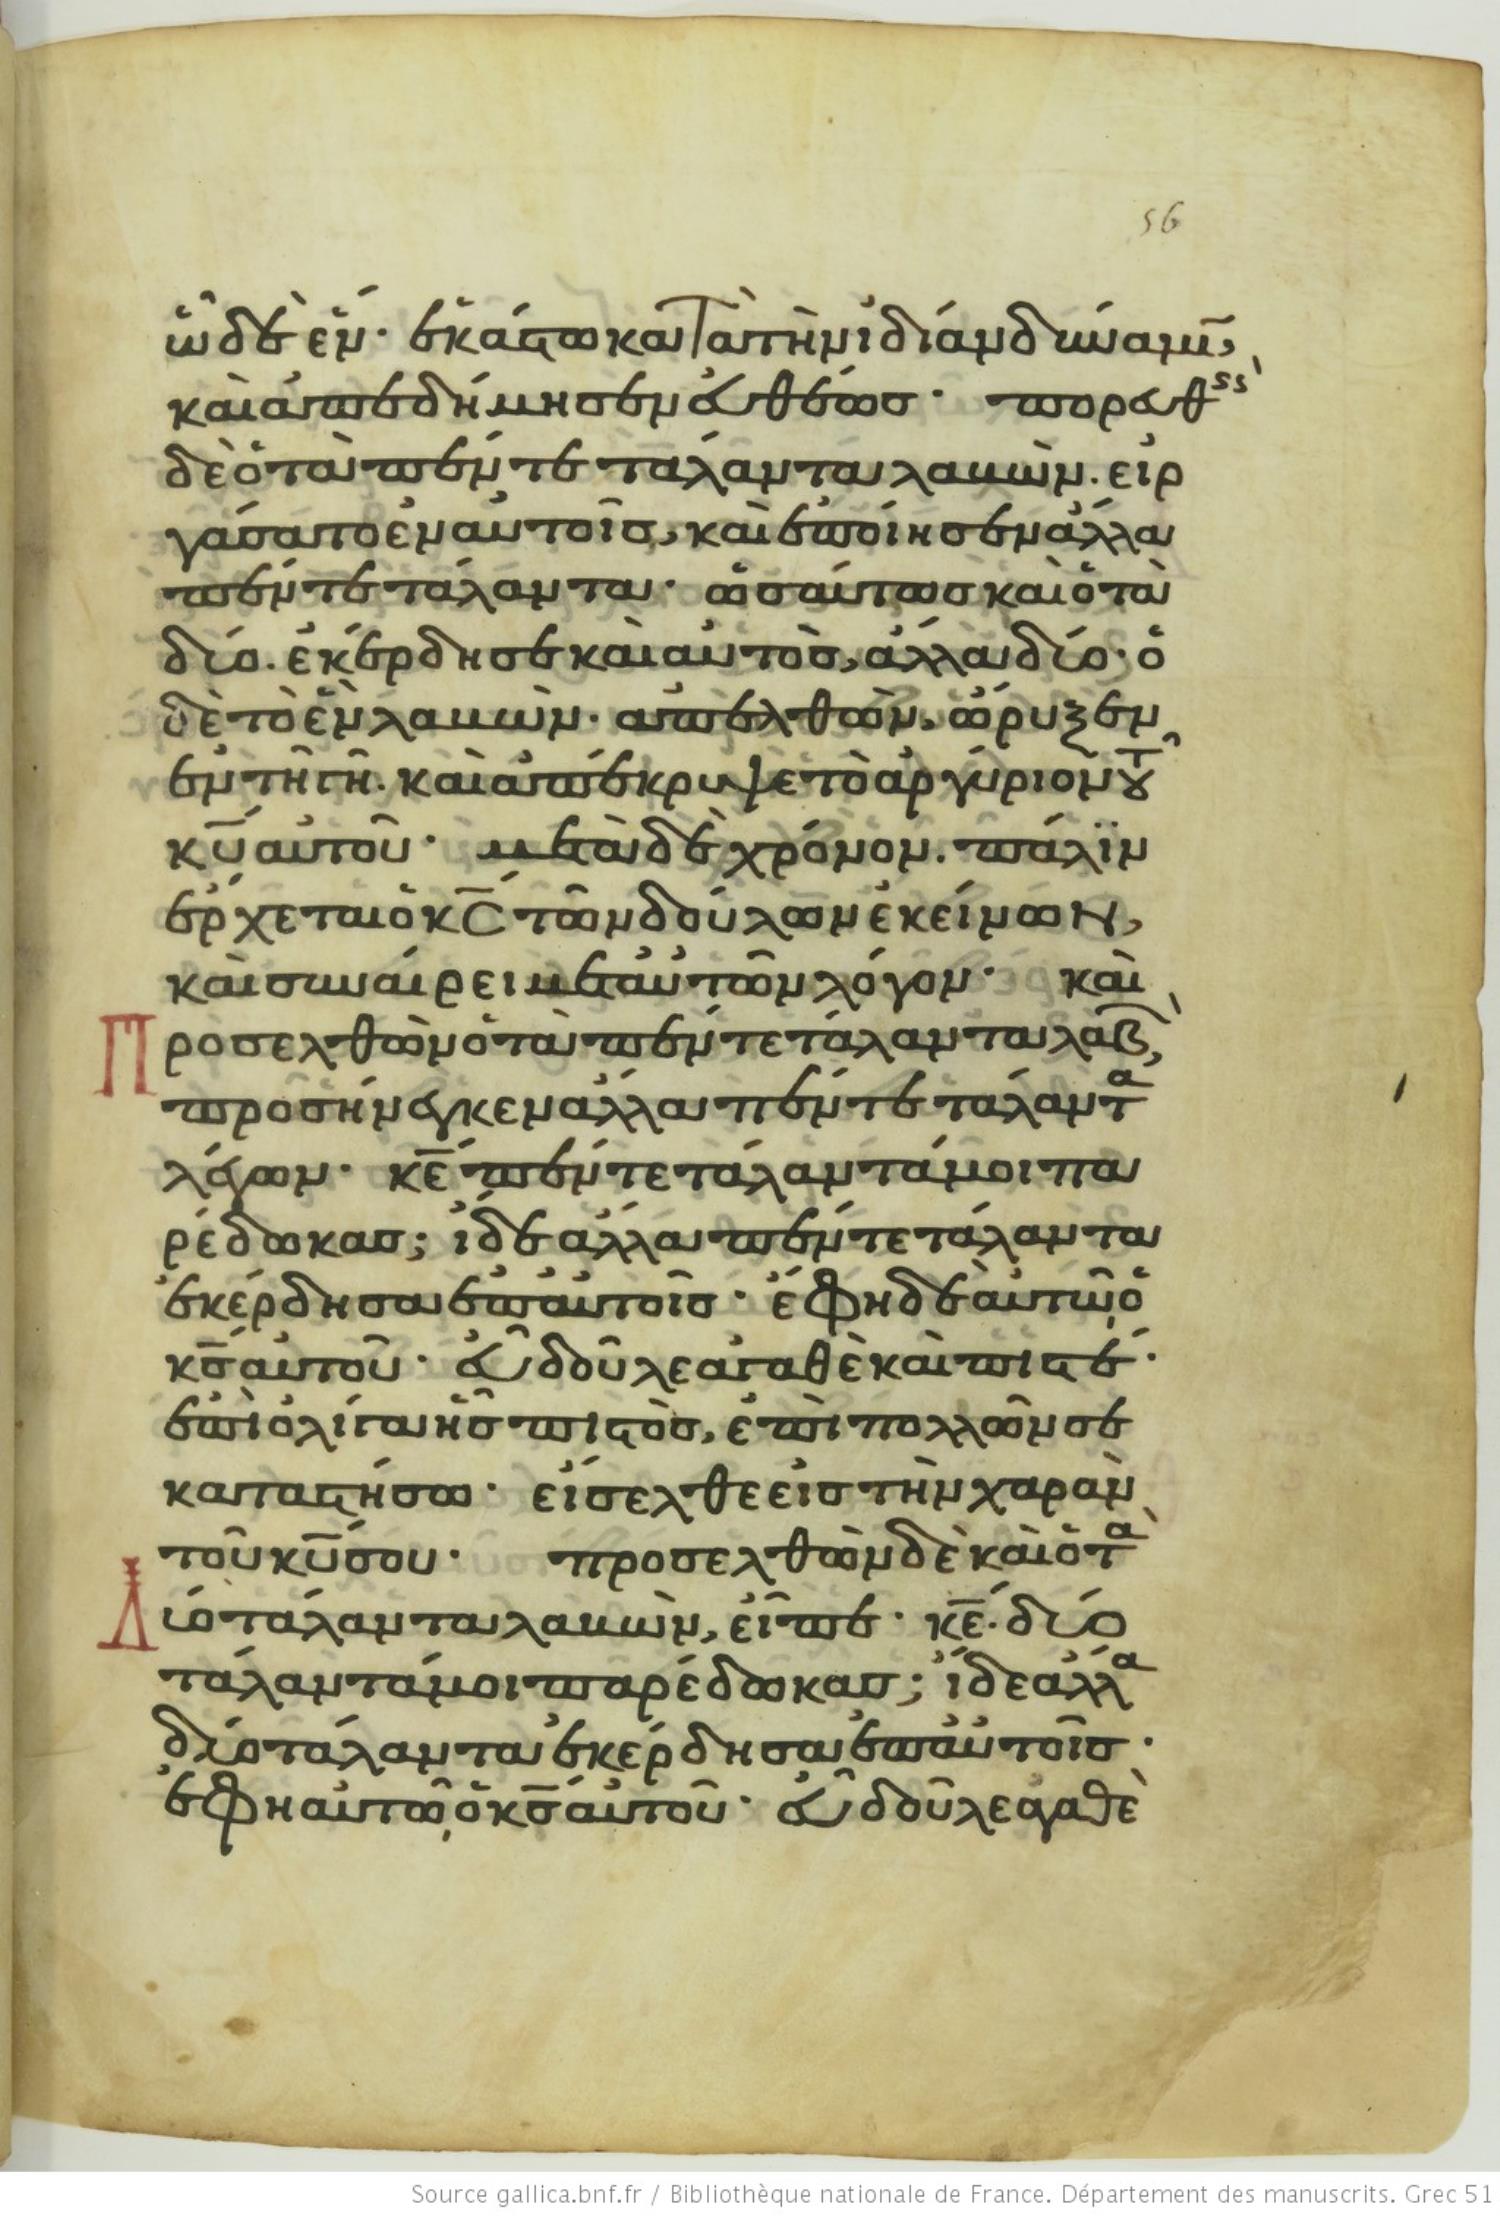 56
ὧδε ἕν· ἑκάστω κατὰ τὴν ἰδίαν δύναμιν,
καὶ ἀπεδήμησεν εὐθέως· πορευθεὶς
δὲ ὁ τὰ πέντε τάλαντα λαβὼν. εἰρ
γάσατο ἐν αὐτοῖς, καὶ ἐποίησεν ἄλλα
πέντε τάλαντα· ὡσαύτως καὶ ὁ τὰ
δύο. ἐκέρδησε καὶ αὐτὸς, ἄλλα δύο· ὁ
δὲ τὸ ἓν λαβὼν· ἀπελθὼν, ὤρυξεν
ἐν τῆ γῆ. καὶ ἀπέκρυψε τὸ ἀργύριον τοῦ
κ̅υ̅ αὐτοῦ· μετὰ δὲ χρόνον. πάλϊν
ἔρχεται ὁ κ̅ς̅ τῶν δούλων ἐκείνων,
καὶ συναίρει μετ' αὐτῶν λόγον· καὶ
Προσελθὼν ὁ τὰ πέντε τάλαντα λαβὼν,
προσήνεγκεν ἄλλα πέντε τάλαντα
λέγων· κ̅ε̅ πέντε τάλαντά μοι πα
ρέδωκας; ἴδε ἄλλα πέντε τάλαντα
ἐκέρδησα ἐπ' αὐτοῖς· ἔφη δὲ αὐτῶ ὁ
κ̅ς̅ αὐτοῦ· εὖ δοῦλε ἀγαθὲ καὶ πιστέ·
ἐπὶ ὀλίγα ἦς πιστὸς, ἐπὶ πολλῶν σε
καταστήσω· εἴσελθε εἰς τὴν χαρὰν
τοῦ κ̅υ̅ σου· προσελθὼν δὲ καὶ ὁ τὰ
Δύο τάλαντα λαβὼν, εἶπε· κ̅ε̅· δύο
τάλαντά μοι παρέδωκας; ἴδε ἄλλα
δύο τάλαντα ἐκέρδησα ἐπ' αὐτοῖς·
ἔφη αὐτῶ ὁ κ̅ς̅ αὐτοῦ· εὖ δοῦλε ἀγαθὲ
Source gallica.bnf.fr / Bibliothèque nationale de France. Département des manuscrits. Grec 51